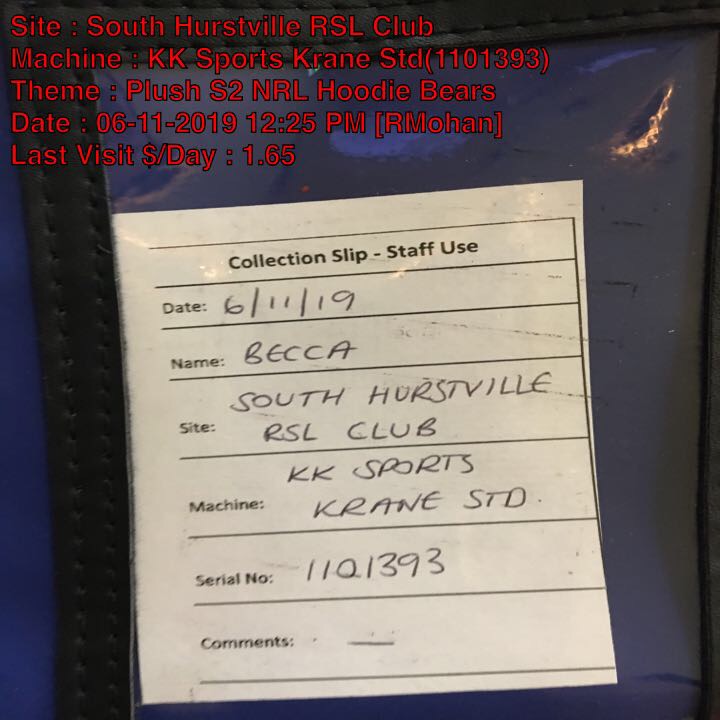 Site : South Hurstville RSL Club
Machine : KK Sports Krane Std(1101393)
Theme : Plush S2 NRL Hoodie Bears
Date : 06-11-2019 12:25 PM [RMohan]
Last Visit $/Day : 1.65
Collection Slip - Staff Use
Date: 6/11/19
Name: BECCA
SOUTH HURSTVILLE
Site: RSL CLUB
KK SPORTS
Machine: KRANE STD.
Serial No: 1101393
Comments: —